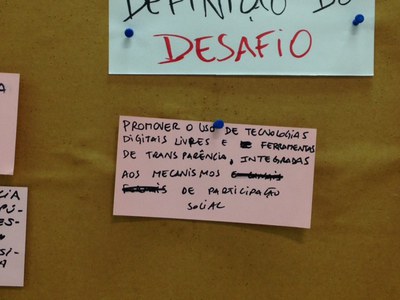 DEFINIÇÃO DO
DESAFIO
PROMOVER O USO DE TECNOLOGIAS
DIGITAIS LIVRES E FERRAMENTAS
DE TRANSPARÊNCIA, INTEGRADAS
AOS MECANISMOS
DE PARTICIPAÇÃO
SOCIAL
A
CIA
PÚ-
ES-
SI-
A